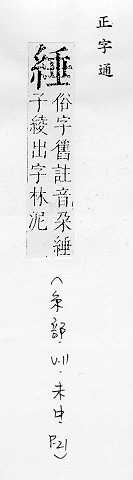 正字通
綞
俗字舊註音朶綞
子綾出字林泥
(糸部·V.11·未中·P.21)